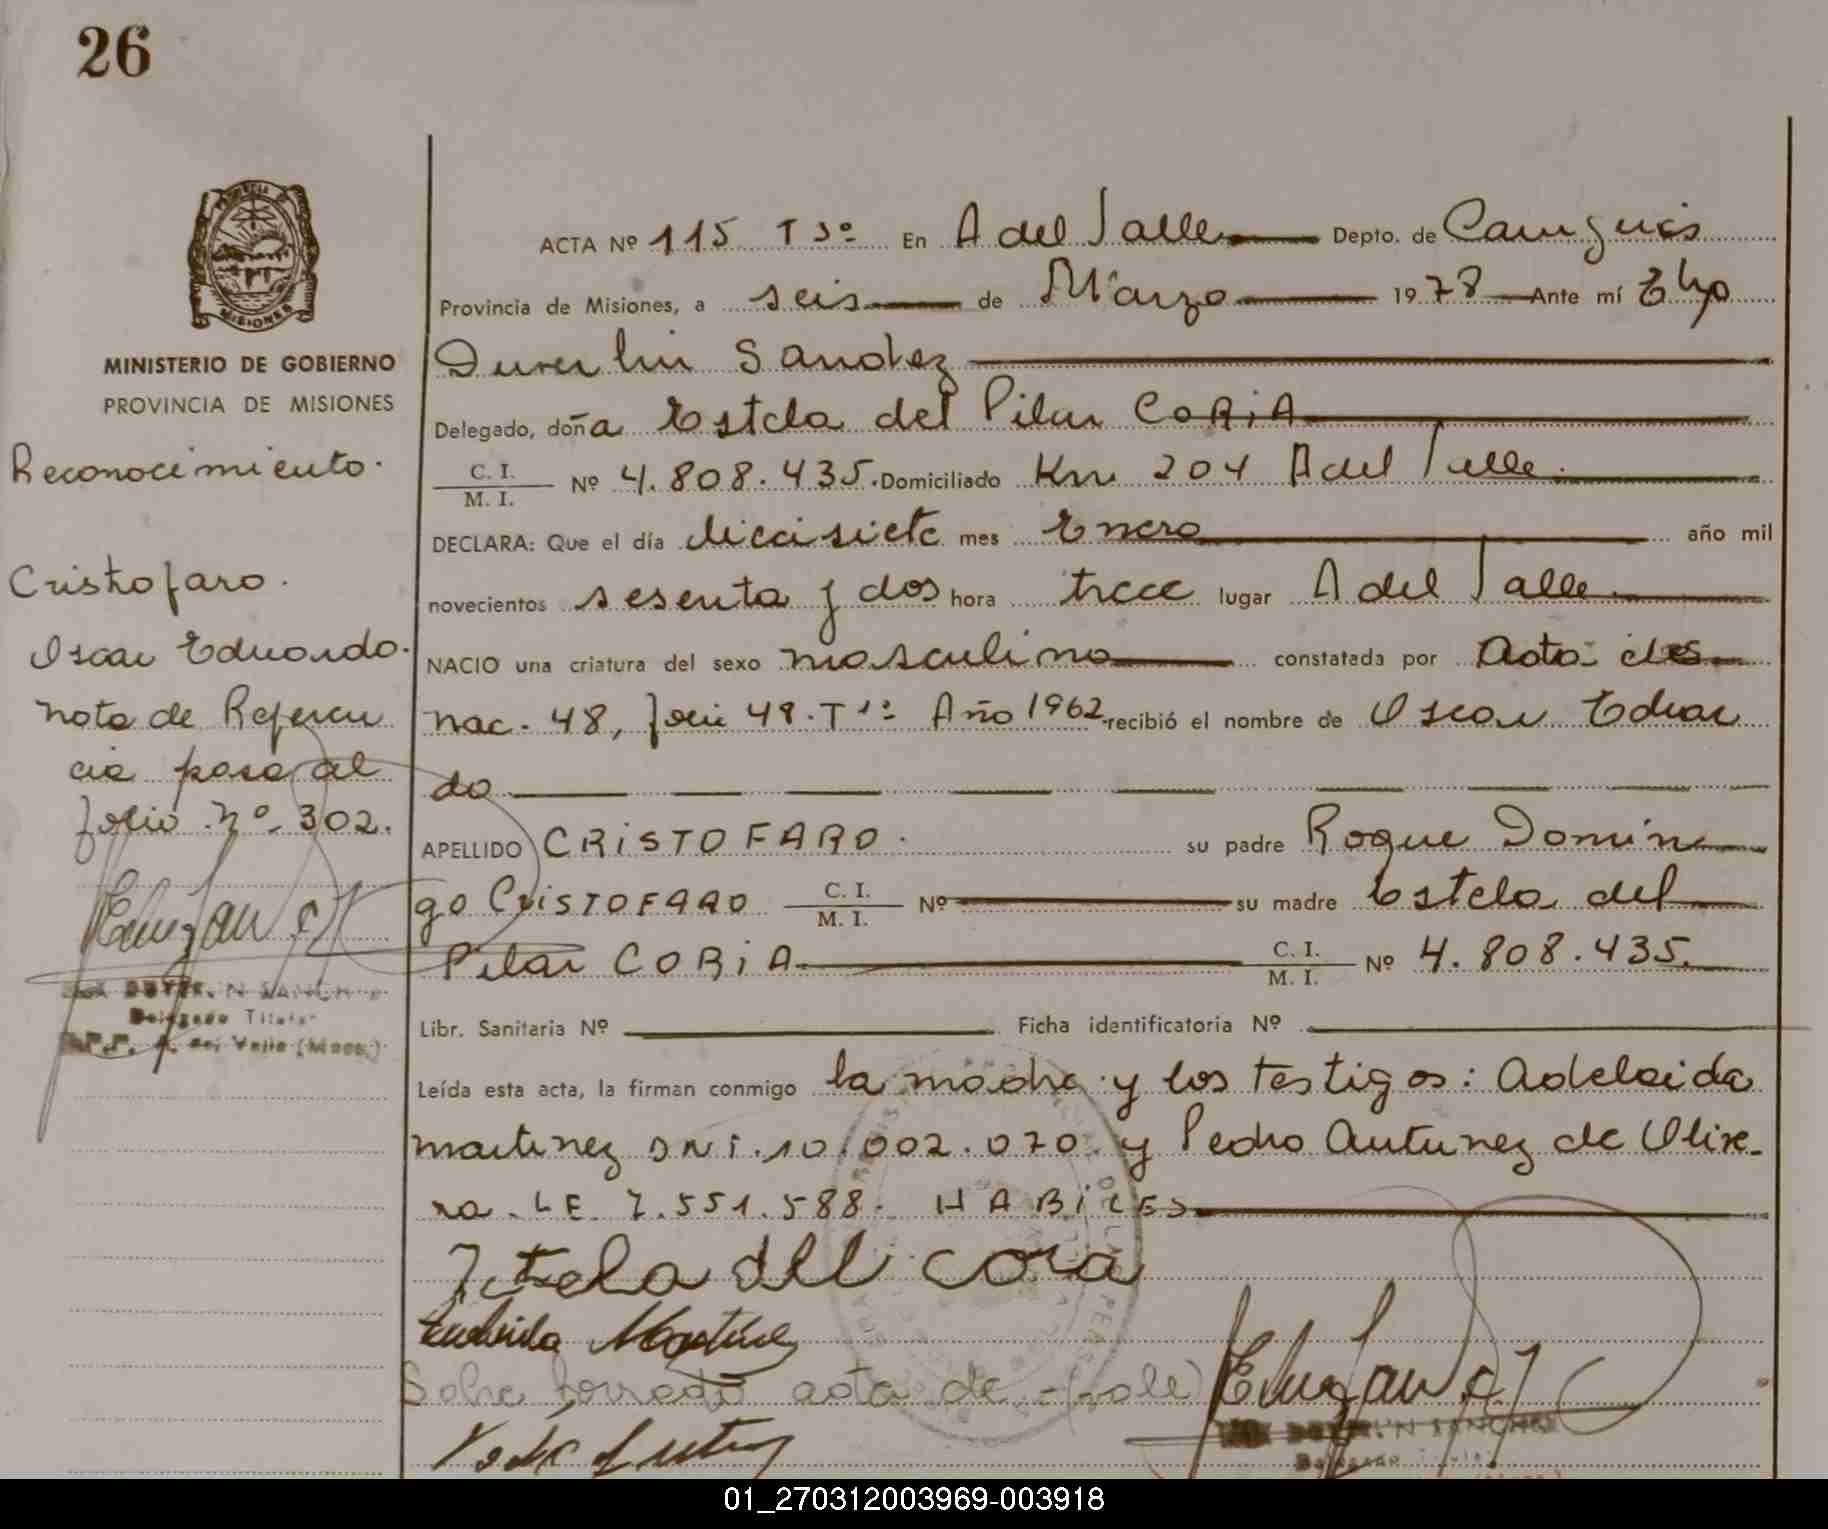 26
MISIONES
MINISTERIO DE GOBIERNO
PROVINCIA DE MISIONES
Reconocimiento.
Cristofaro.
Oscar Eduardo.
nota de Referen
cia pasa al
folio nº 302.
Delegado Titular
del Valle (Mnes.)
ACTA Nº 115 T 3º En A del Valle Depto. de Cainguás
Provincia de Misiones, a seis de Marzo 1978 Ante mí
Sanchez
Delegado, doña Estela del Pilar CORiA
C. I.
M. I. Nº 4.808.435. Domiciliado Km 204 A del Valle.
DECLARA: Que el día diecisiete mes Enero año mil
novecientos sesenta y dos hora trece lugar A del Valle
NACIO una criatura del sexo masculino constatada por Acta de
nac. 48, folio 48. T 1º Año 1962 recibió el nombre de Oscar Eduar
do
APELLIDO CRiSTOFARO. su padre Roque Domin
go CRiSTOFARO C. I.
M. I. Nº su madre Estela del
Pilar CORiA C. I.
M. I. Nº 4.808.435.
Libr. Sanitaria Nº Ficha identificatoria Nº
Leída esta acta, la firman conmigo la madre y los testigos: Adelaida
Martinez DNi. 10.002.070. y Pedro Antunez de Olive-
ra. LE 7.551.588. HABiLES
Estela del Coria
Martinez
Sobre borrado acta de (vale)
SANCHEZ
Delegado Titular
01_270312003969-003918